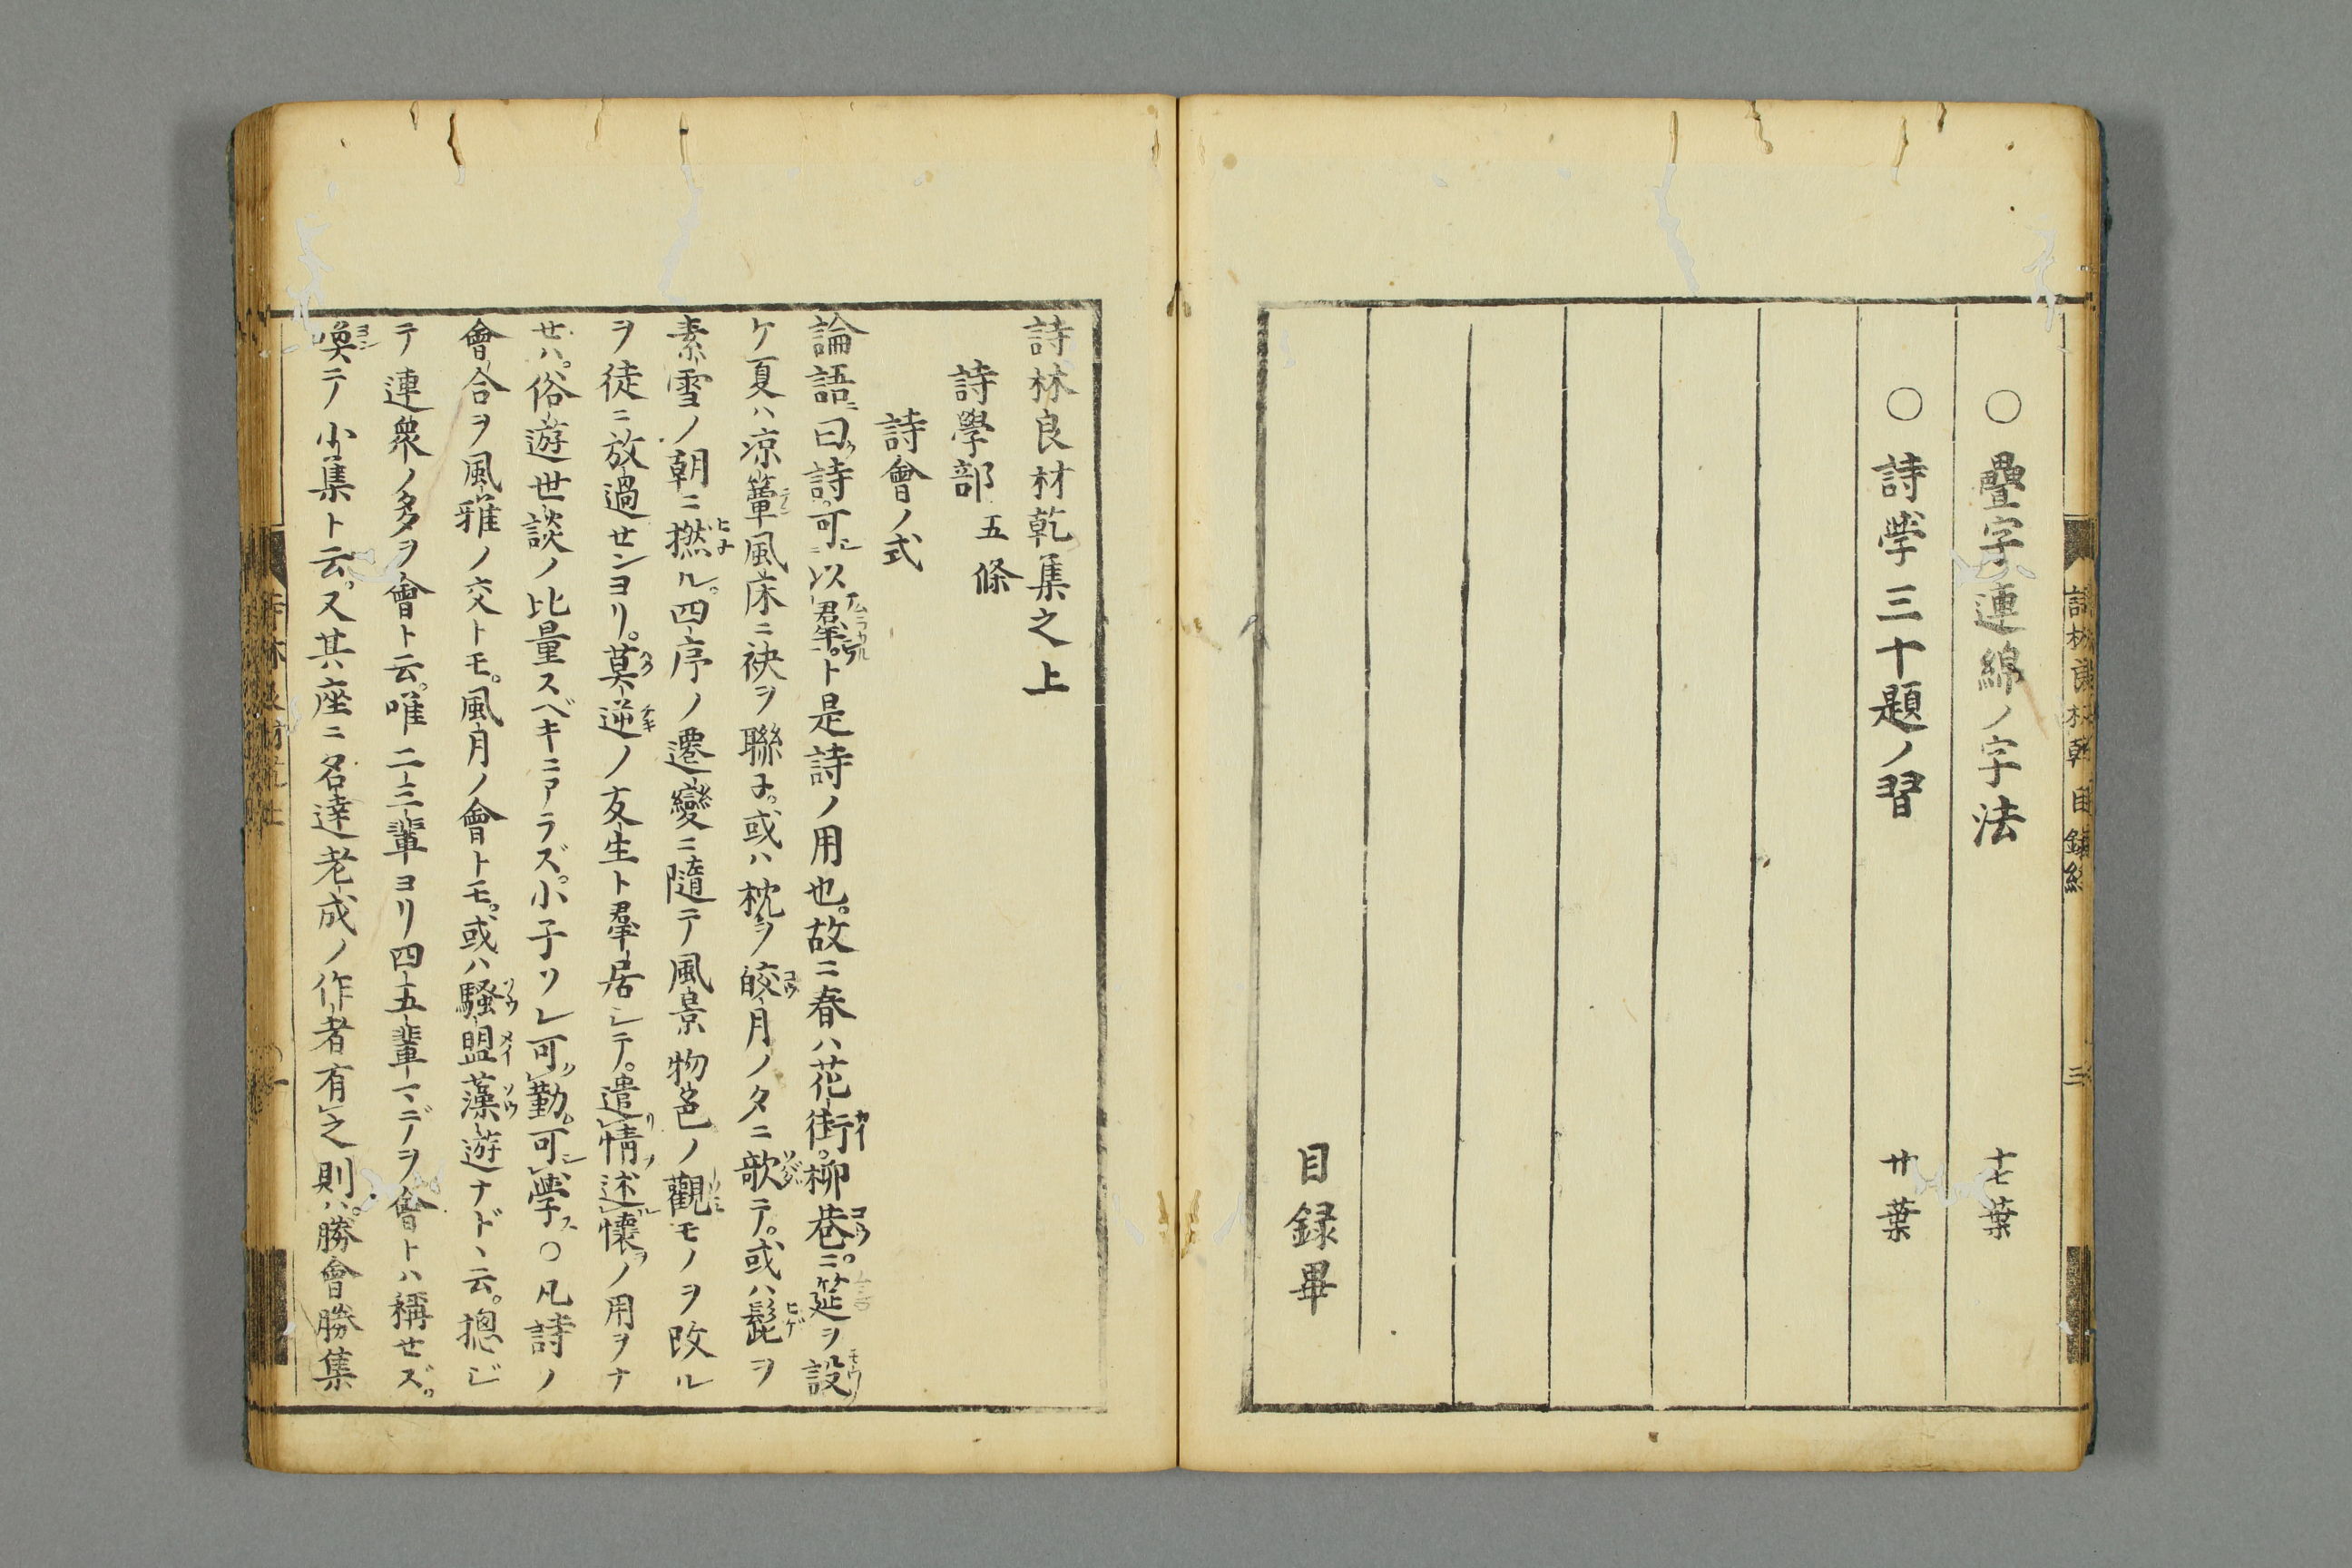 ○疊字連綿ノ字法 十七葉
○詩学三十題ノ習 廿葉
目録畢
詩林良材乾集之上
詩學部五條
詩會ノ式
論語ニ曰ク詩可以羣ト是詩ノ用也。故ニ春ハ花街。柳巷。ニ筵ヲ設
ケ夏ハ凉簟風床ニ袂ヲ聯ネ。或ハ枕ヲ皎月ノ夕ニ歌テ。或ハ髭ヲ
素雪ノ朝ニ撚ル。四序ノ遷變ニ隨テ風景物色ノ觀モノヲ改ル
ヲ徒ニ放過センヨリ。莫逆ノ友生ト羣居シテ。遣情述懷ノ用ヲナ
サハ。俗遊世談ノ比量スベキニアラズ。小子ソレ可勤可學○凡詩ノ
會合ヲ風雅ノ交トモ。風月ノ會トモ。或ハ騷盟藻遊ナド丶云。揔ジ
テ連衆ノ多ヲ會ト云。唯二三輩ヨリ四五輩マデノヲ會トハ稱セズ。
喚テ小集ト云。又其座ニ名達老成ノ作者有之則ハ。勝會勝集